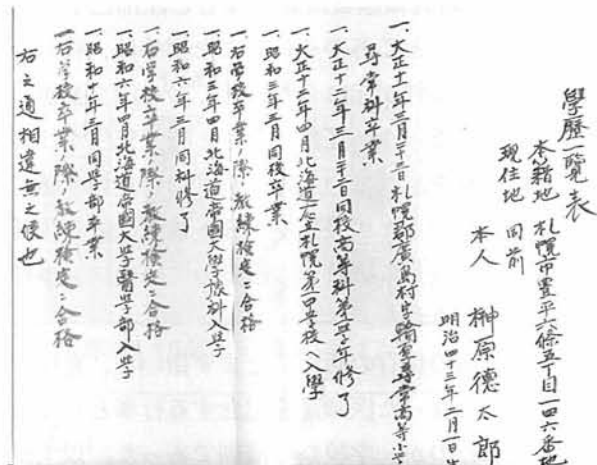 學歴一覧表
本籍地 札幌市豊平六條五丁目一四六番地
現住地 同前
本人 榊原德太郎
明治四十三年二月一日生
一、大正十一年三月二十三日札幌郡廣島村字輪厚尋常高等小学
尋常科卒業
一、大正十二年三月二十二日同校高等科第一学年修了
一、大正十二年四月北海道庁立札幌第一中学校ヘ入學
一、昭和三年三月同校卒業
一、右学校卒業ノ際、教練検定ニ合格
一、昭和三年四月北海道帝國大學豫科入学
一、昭和六年三月同科修了
一、右学校卒業ノ際、教練検定ニ合格
一、昭和六年四月北海道帝國大学醫学部入学
一、昭和十年三月同学部卒業
一、右学校卒業ノ際、教練検定ニ合格
右之通相違無之候也